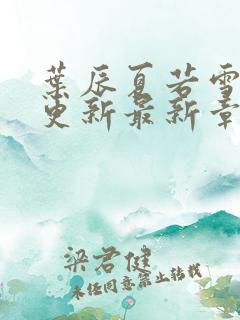 葉辰夏若雪
更新最新章
梁君健
未经同意禁止转载